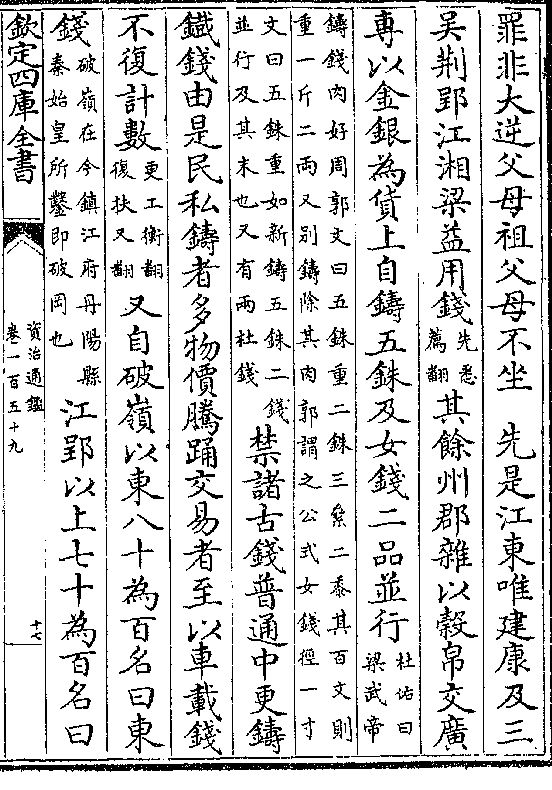 罪非大逆父母祖父母不坐　先是江東唯建康及三
吳荆郢江湘梁益用錢先悉薦翻其餘州郡雜以穀帛交廣
専以金銀為貨上自鑄五銖及女錢二品並行杜佑曰梁武帝
鑄錢肉好周郭文曰五銖重二銖三絫二黍其百文則
重一斤二兩又别鑄除其肉郭謂之公式女錢徑一寸
文曰五銖重如新鑄五銖二錢
並行及其末也又有兩柱錢
禁諸古錢普通中更鑄
鐵錢由是民私鑄者多物價騰踊交易者至以車載錢
不復計數更工衡翻復扶又翻又自破嶺以東八十為百名曰東
錢破嶺在今鎮江府丹陽縣秦始皇所鑿即破岡也江郢以上七十為百名曰
欽定四庫全書
資治通鑑
卷一百五十九
十七